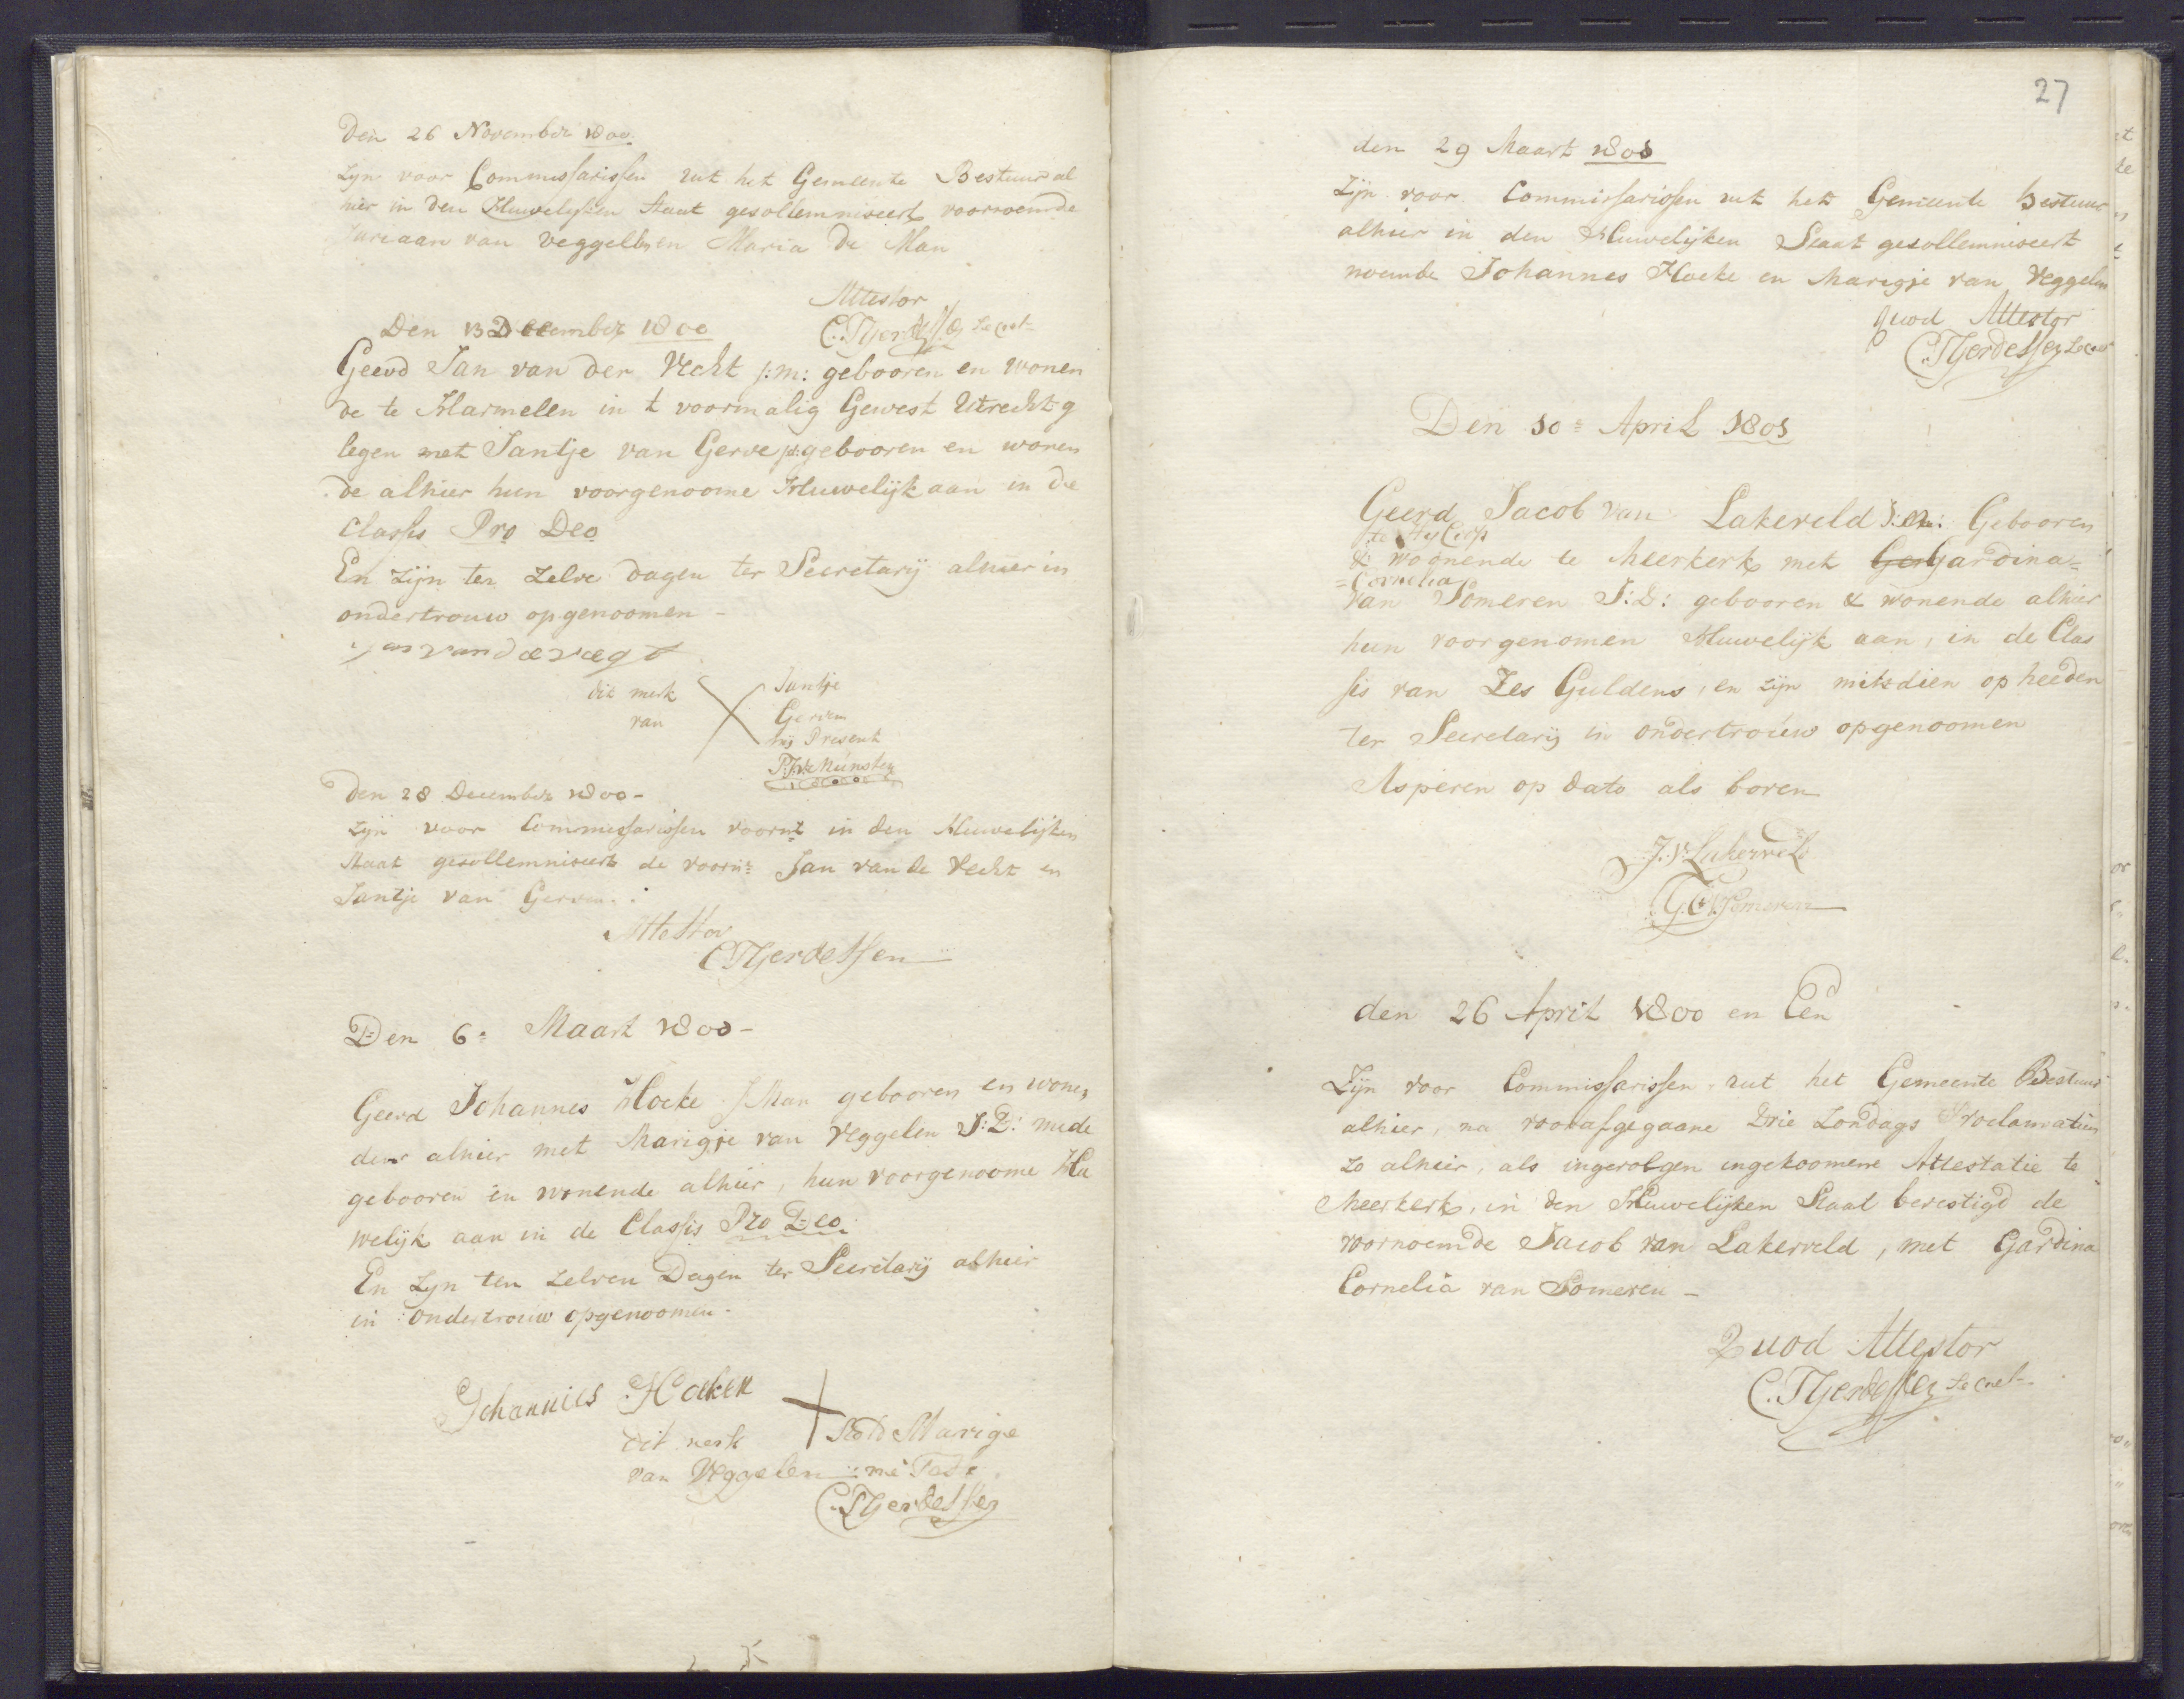 Den 26 November 1800.
Zyn voor Commissarissen uit het Gemeente Bestuur al
hier in den Huwelyken Staat gesollemniseert voornoemde
Juriaan van Veggelen en Maria de Man
Attestor
C. Tjerdessen Secret.
Den 13 December 1800
Geevd Jan van der Vecht j:m: gebooren en wonen
de te Harmelen in t voormalig Gewest Utrecht g
legen met Jantje van Gerve gebooren en wonen
de alhier hun voorgenoome Huwelijk aan in de
classis Pro Deo
En zijn ten zelve dagen ter Secretarij alhier in
ondertrouw opgenoomen -
Jan van de vegt
dit merk
van
Jantje
Gerven
bij Present
Den 28 December 1800-
Zyn voor Commissarissen voornt in den Huwelijken
Staat gesollemniseert de voorn: Jan van de Vecht en
Jantje van Gerven.
Attestor
C Tjerdessen
Den 6= Maart 1800-
Geevd Johannes Hoeke J Man gebooren en wonen,
der alhier met Marigje van Veggelen J:D: mede
gebooren en wonende alhier, hun voorgenoome Hu
welijk aan in de Classis Pro Deo.
En zyn ten zelven Dagen ter Secretarij alhier
in ondertrouw opgenoomen.
Johannies Hoeken
dit merk
Marige
van Veggelen
C. Tjerdessen
27
den 29 Maart 1801
Zijn voor Commissarissen uit het Gemeente Bestuur
alhier in den Huwelijken Staat gesollemniseert
noemde Johannes Hoeke en Marigje van Veggelen
quod Attestor
C. Tjerdessen Secret
Den 10= April 1801
Geerd Jacob van Lakerveld J:M: Gebooren
& woonende te Meerkerk met Ger Gardina=
=Cornelia
van Someren J:D: gebooren & wonende alhier
hun voorgenomen Huwelijk aan, in de Clas
sis van Zes Guldens, en zijn mitsdien op heeden
ter Secretarij in ondertrouw opgenoomen
Asperen op dato als boven
J. v. Lakerveld
G. C. v. Someren
den 26 April 1800 en Een
Zijn voor Commissarissen uit het Gemeente Bestuur
alhier, na voorafgegaane Drie Zondags Proclamatien
zo alhier, als ingevolgen ingekoomene Attestatie te
Meerkerk, in den Huwelijken Staat bevestigd de
voornoemde Jacob van Lakerveld, met Gardina
Cornelia van Someren -
Quod Attestor
C. Tjerdessen Secret.